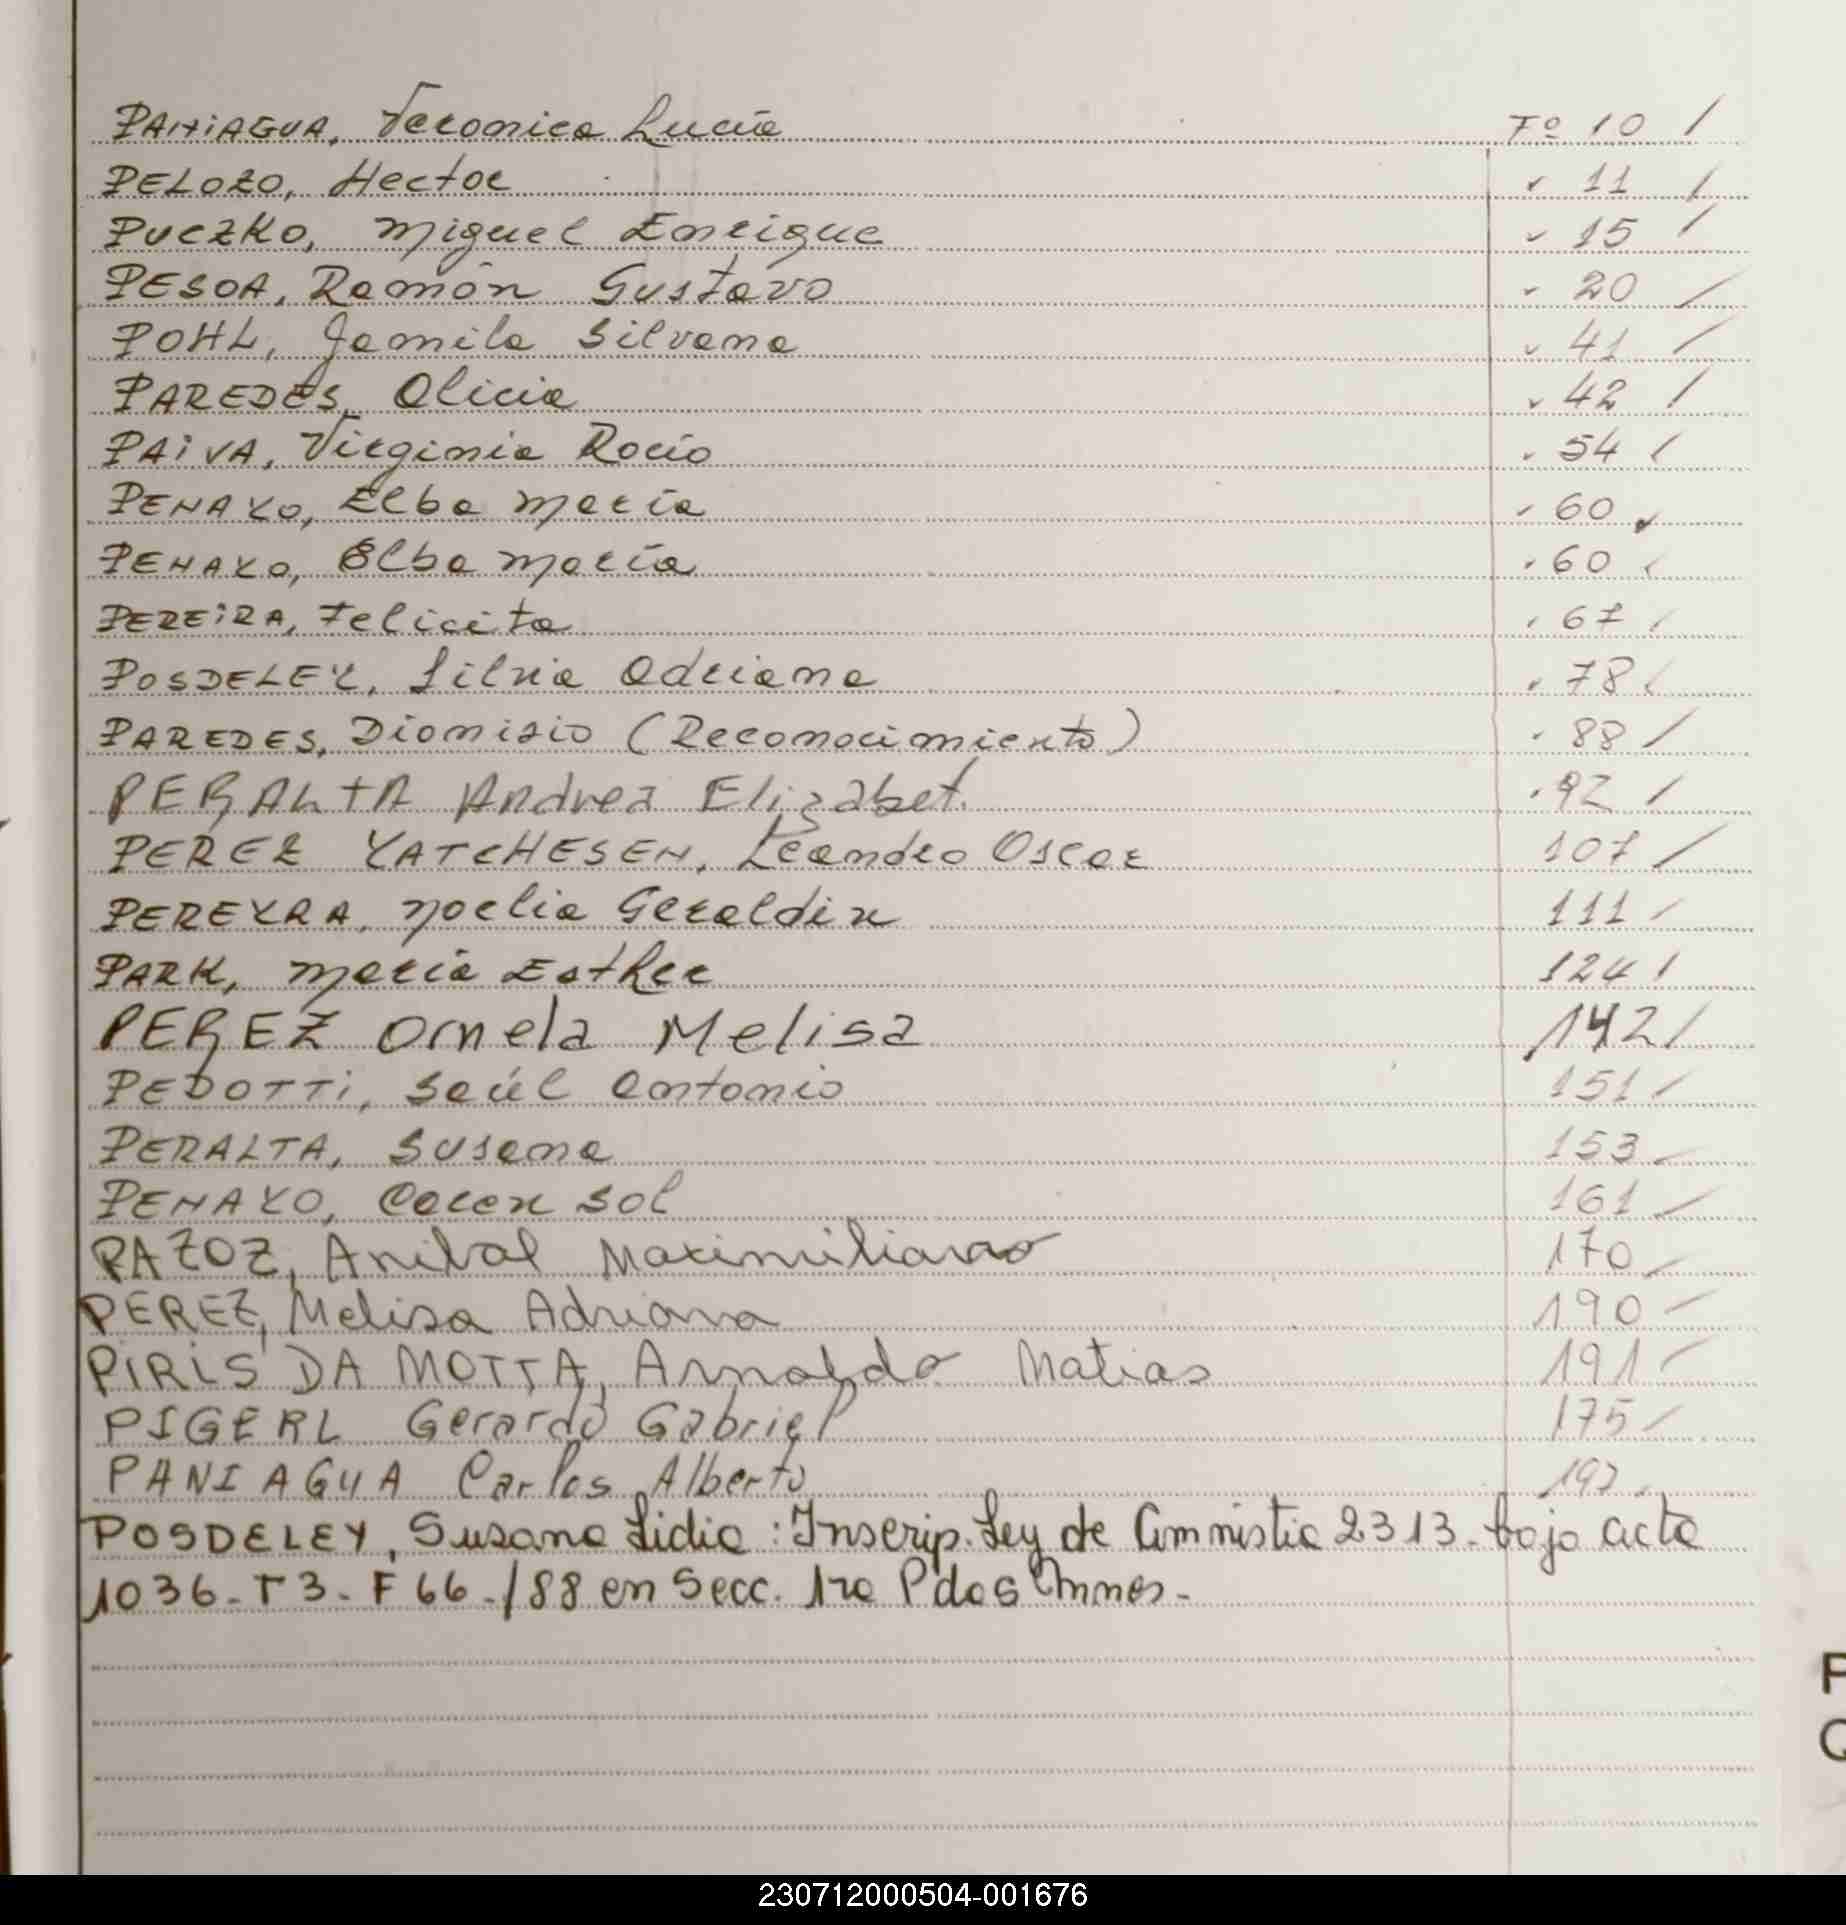 PANIAGUA, Veronica Lucía Fº 10 /
PELOZO, Hector " 11 /
PUCZKO, Miguel Enrique " 15 /
PESOA, Ramón Gustavo " 20 /
POHL, Jamila Silvana " 41 /
PAREDES, Alicia " 42 /
PAIVA, Virginia Rocío " 54 /
PENAYO, Elba María " 60
PENAYO, Elba María " 60
PEREIRA, Felicita " 67 /
POSDELEY, Silvia Adriana " 78 /
PAREDES, Dionisio (Reconocimiento) " 88 /
PERALTA Andrea Elizabet. " 92 /
PEREZ YATCHESEN, Leandro Oscar 107 /
PEREYRA, Noelia Geraldin 111 /
PARK, María Esther 124 /
PEREZ Ornela Melisa 142 /
PEDOTTI, Saúl Antonio 151 /
PERALTA, Susana 153 /
PENAYO, Caren Sol 161 /
PAZOZ, Anibal Maximiliano 170 /
PEREZ, Melisa Adriana 190 /
PIRIS DA MOTTA, Arnaldo Matias 191 /
PIGERL Gerardo Gabriel 175 /
PANIAGUA Carlos Alberto
POSDELEY, Susana Lidia : Inscrip. Ley de Amnistia 2313. bajo acta
1036 - T 3 - F 66 - /88 en Secc. 1ra Pdas
P
Q
230712000504-001676